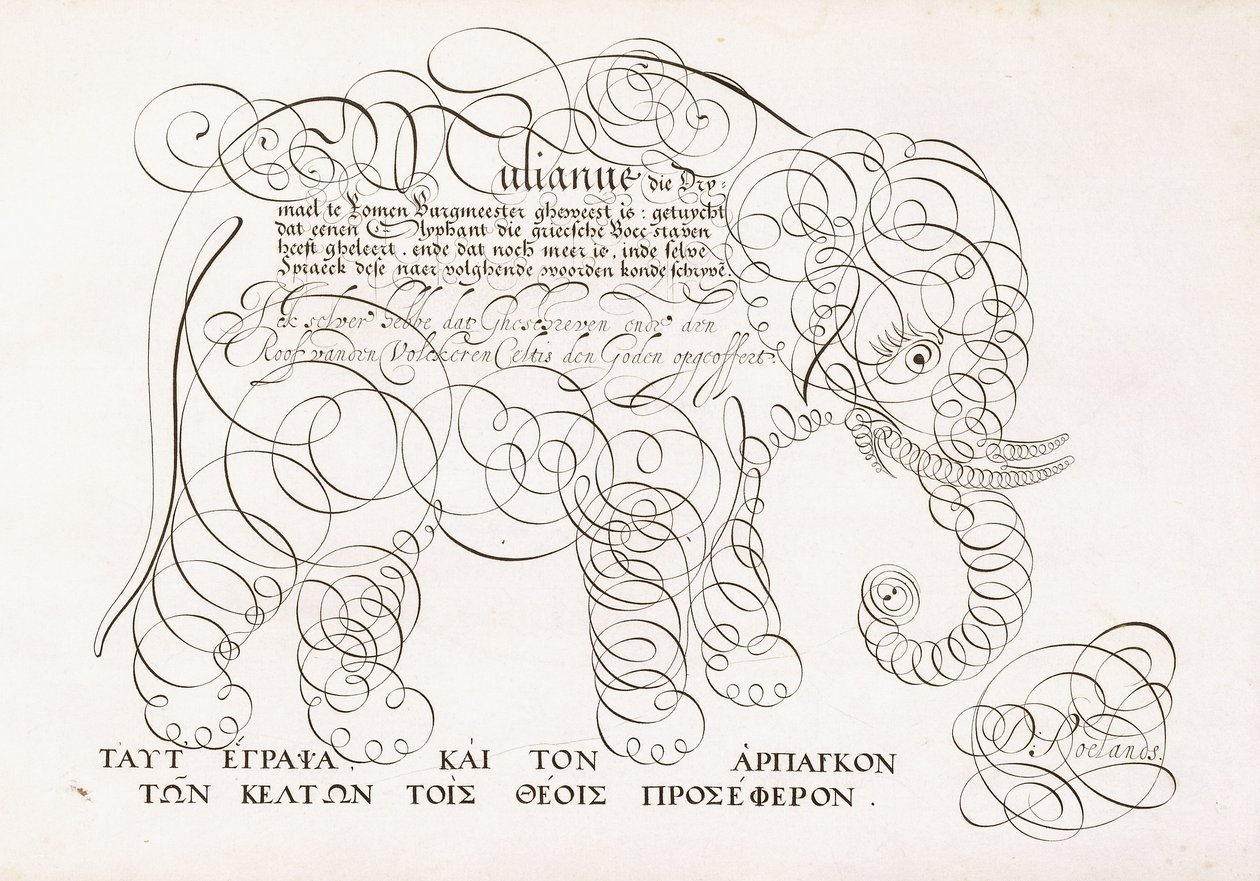 Mulianus die Dry=
mael te Romen Burgmeester gheweest is: getuycht
dat eenen Olyphant die griecsche Bocc staven
heeft gheleert. ende dat noch meer is, inde selve
Spraeck dese naer volghende woorden konde schryvē.
Ick selver hebbe dat Gheschreven ende den
Roof vanden Volckeren Celtis den Goden opgeoffert.
ΤΑΥΤ ἘΓΡΑΨΑ, ΚΑῚ ΤΟΝ ἈΡΠΑΓΚΟΝ
ΤΩ͂Ν ΚΕΛΤΩΝ ΤΟῚΣ ΘΈΟΙΣ ΠΡΟΣΈΦΕΡΟΝ.
D: Roelands.